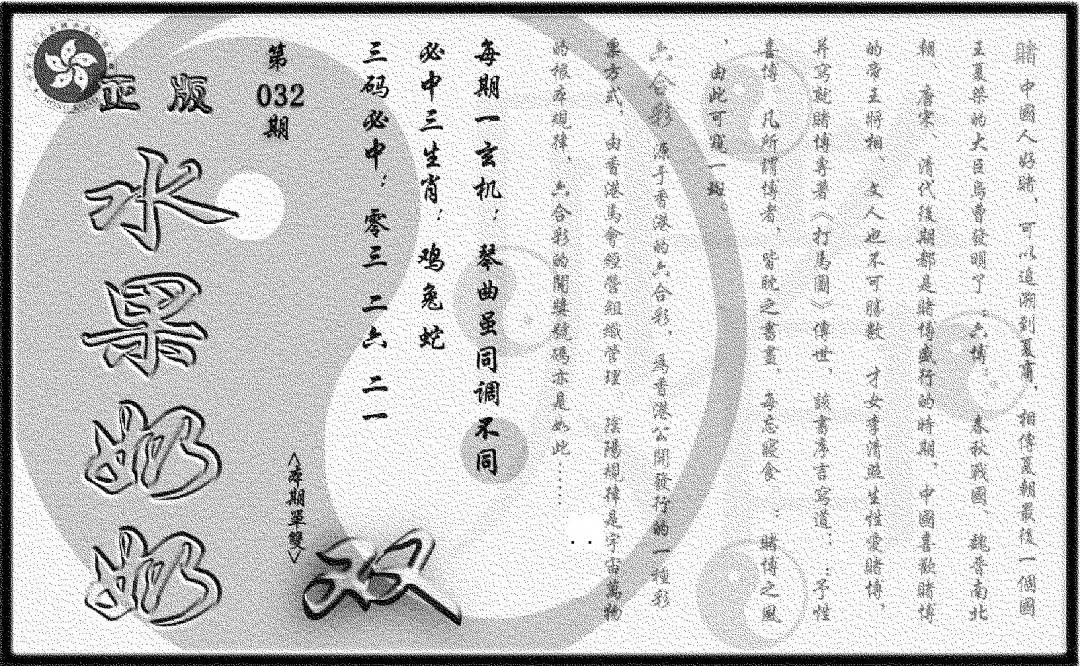 賭中國人好賭，可以追溯到夏商，相傳夏朝最後一個國
王夏桀的大臣烏曹發明了“六博”。春秋戰國、魏晉南北
朝、唐宋、清代後期都是賭博盛行的時期，中國喜歡賭博
的帝王將相、文人也不可勝數，才女李清照生性愛賭博，
并寫就賭博專著《打馬圖》傳世，該書序言寫道：“予性
喜博，凡所謂博者，皆耽之晝夜，每忘寢食”；賭博之風
，由此可窺一斑。
六合彩源于香港的六合彩，爲香港公開發行的一種彩
票方式，由香港馬會經營組織管理，陰陽規律是宇宙萬物
的根本規律，六合彩的開獎號碼亦是如此……
每期一玄机：琴曲虽同调不同
必中三生肖：鸡兔蛇
三码必中：零三 二六 二一
第032期
<本期單雙>
双
正版
水果奶奶